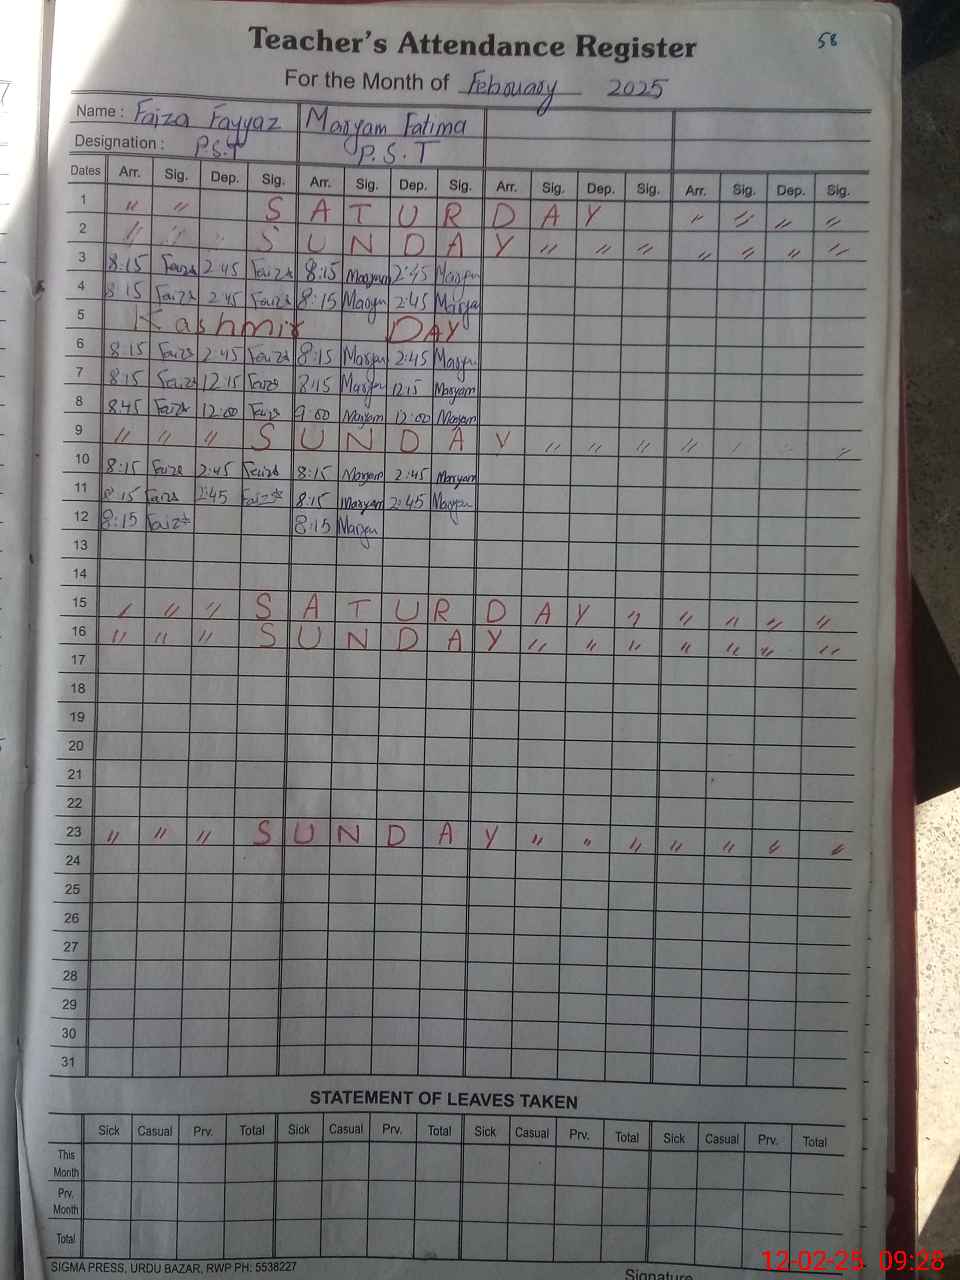 58
Teacher's Attendance Register
For the Month of February 2025
Name : Faiza Fayyaz Maryam Fatima
Designation : P.S.T P.S.T
Dates Arr. Sig. Dep. Sig. Arr. Sig. Dep. Sig. Arr. Sig. Dep. Sig. Arr. Sig. Dep. Sig.
1 " " S A T U R D A Y " " " "
2 " " " S U N D A Y " " " " " " "
3 8:15 Faiza 2:45 Faiza 8:15 Maryam 2:45 Maryam
4 8:15 Faiza 2:45 Faiza 8:15 Maryam 2:45 Maryam
5 Kashmir DAY
6 8:15 Faiza 2:45 Faiza 8:15 Maryam 2:45 Maryam
7 8:15 Faiza 12:15 Faiza 8:15 Maryam 12:15 Maryam
8 8:45 Faiza 12:00 Faiza 9:00 Maryam 12:00 Maryam
9 " " " S U N D A Y " " " " " " "
10 8:15 Faiza 2:45 Faiza 8:15 Maryam 2:45 Maryam
11 8:15 Faiza 2:45 Faiza 8:15 Maryam 2:45 Maryam
12 8:15 Faiza 8:15 Maryam
13
14
15 " " " S A T U R D A Y " " " " "
16 " " " S U N D A Y " " " " " " "
17
18
19
20
21
22
23 " " " S U N D A Y " " " " " " "
24
25
26
27
28
29
30
31
STATEMENT OF LEAVES TAKEN
Sick Casual Prv. Total Sick Casual Prv. Total Sick Casual Prv. Total Sick Casual Prv. Total
This Month
Prv. Month
Total
SIGMA PRESS, URDU BAZAR, RWP PH: 5538227
Signature
12-02-25 09:28